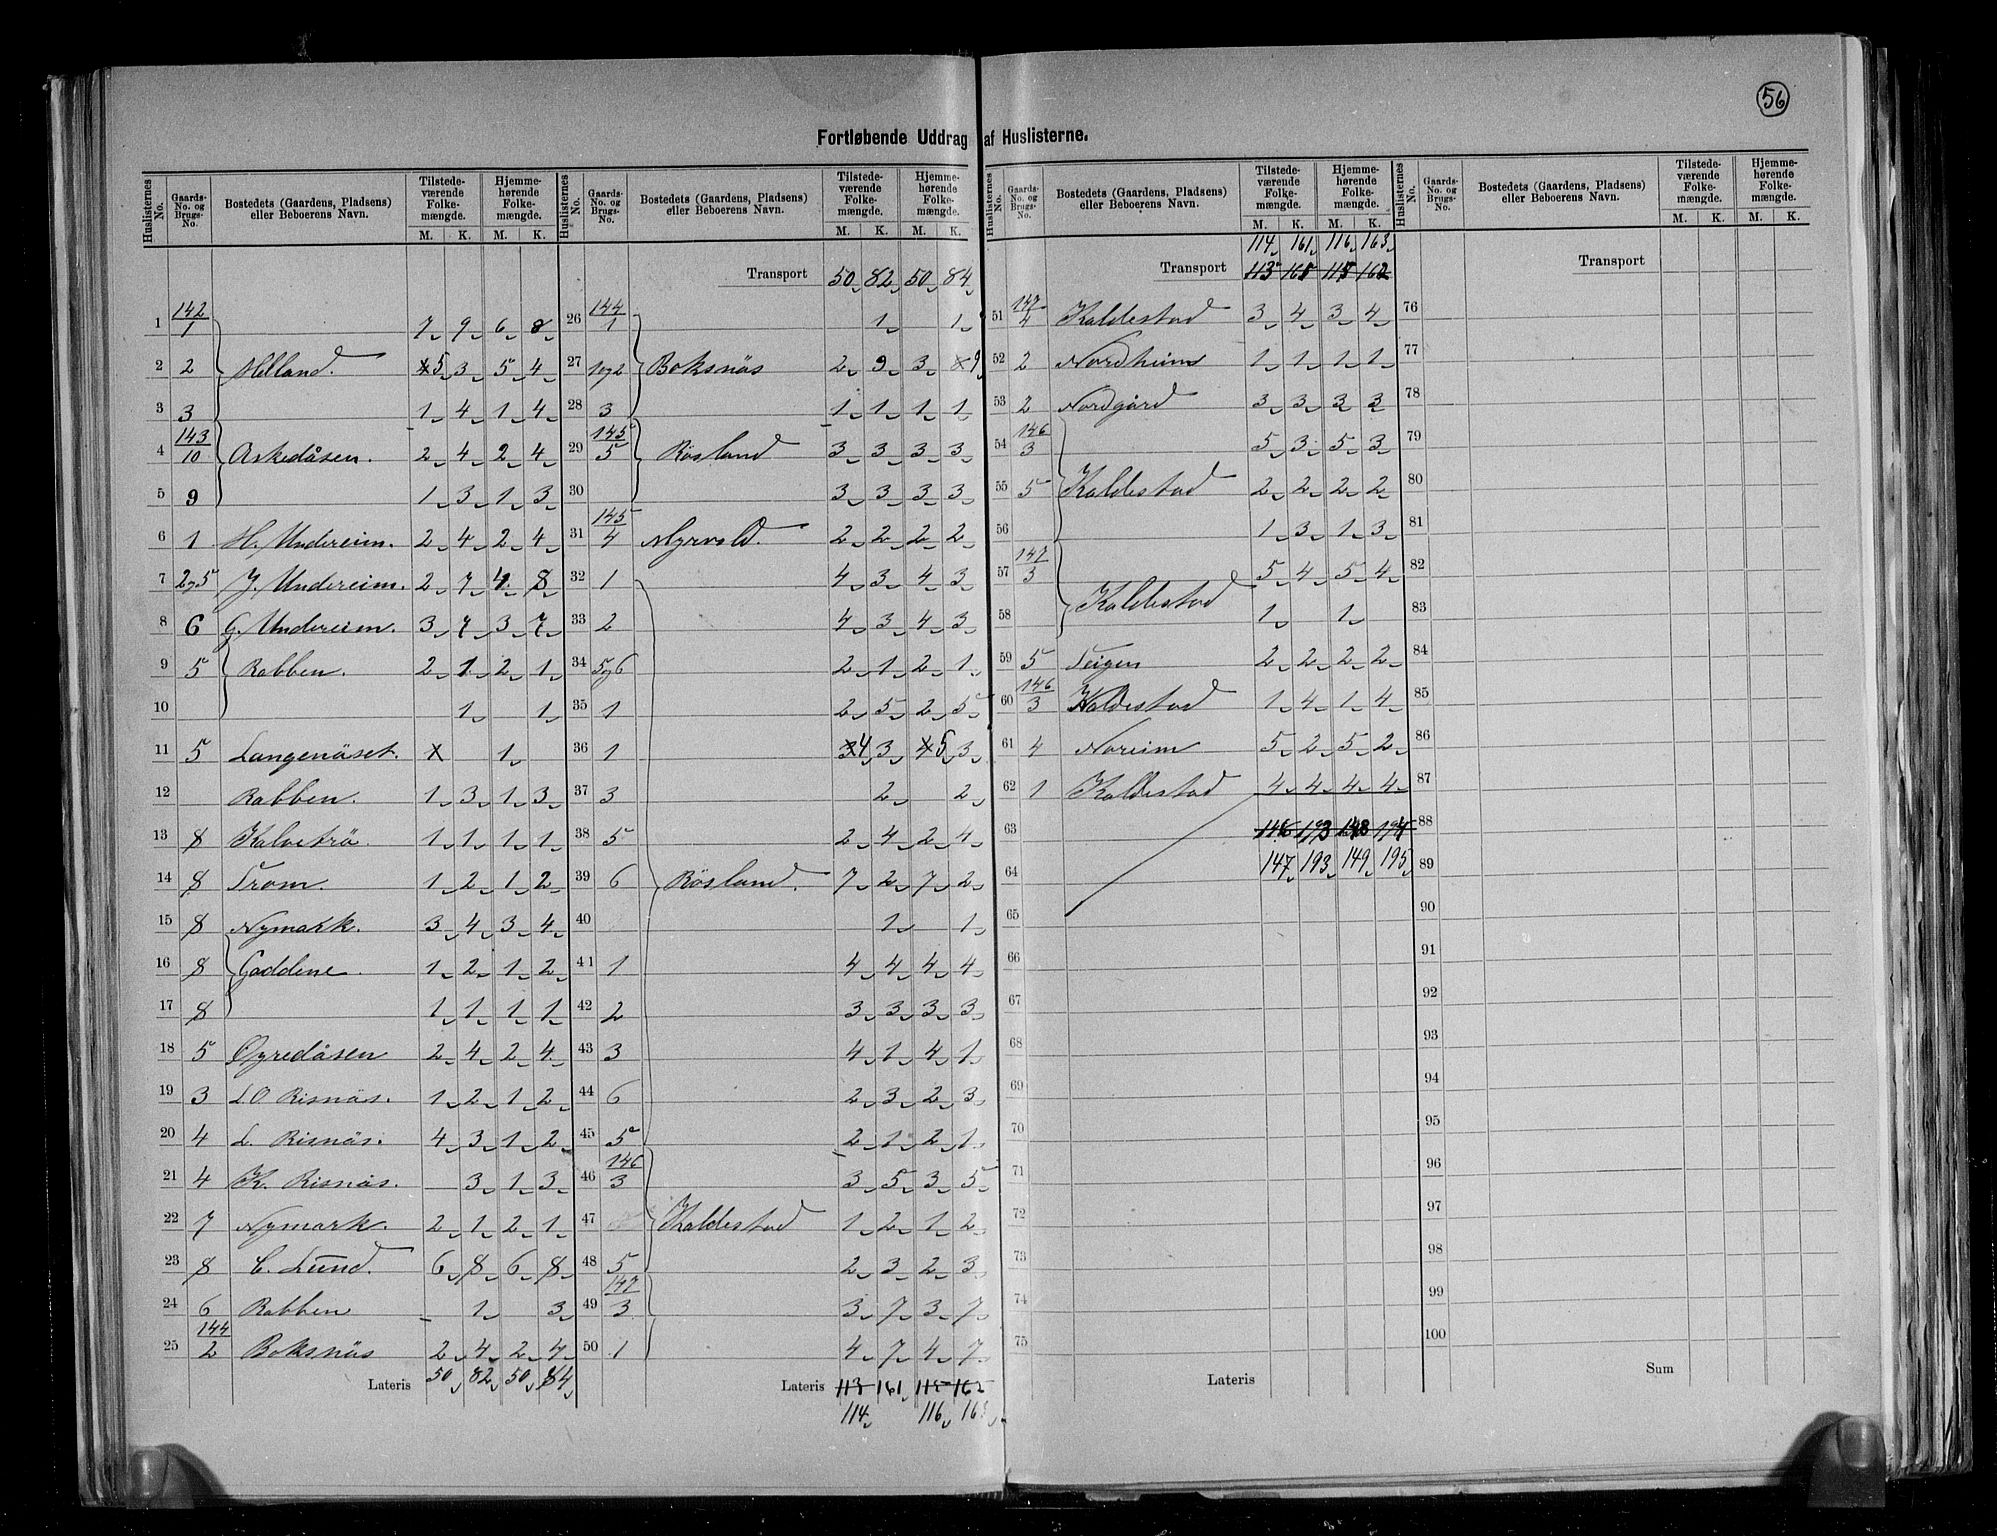 56
Fortløbende Uddrag af Huslisterne.
Huslisternes No. Gaards-No. og Brugs-No. Bostedets (Gaardens, Pladsens) eller Beboerens Navn. Tilstede-værende Folke-mængde. M. K. Hjemme-hørende Folke-mængde. M. K.
1 142/1 7 9 6 8
2 2 Helland. 5 3 5 4
3 3 1 4 1 4
4 143/10 Askedåsen. 2 4 2 4
5 9 1 3 1 3
6 1 H. Undereim. 2 4 2 4
7 2og5 J. Undereim. 2 7 4 8
8 6 G. Undereim. 3 7 3 7
9 5 Rabben. 2 1 2 1
10 1 1
11 5 Langenäset. 1
12 Rabben. 1 3 1 3
13 8 Kalvetrö. 1 1 1 1
14 8 Trom. 1 2 1 2
15 8 Nymark. 3 4 3 4
16 8 Gaddene 1 2 1 2
17 8 1 1 1 1
18 5 Öyredåsen 2 4 2 4
19 3 L.O. Risnäs. 1 2 1 2
20 4 L. Risnäs. 4 3 1 2
21 4 K. Risnäs. 3 1 3
22 7 Nymark. 2 1 2 1
23 8 C. Lund. 6 8 6 8
24 6 Rabben 1 3
25 144/2 Boksnäs 2 4 2 4
Lateris 50 82 50 84
Huslisternes No. Gaards-No. og Brugs-No. Bostedets (Gaardens, Pladsens) eller Beboerens Navn. Tilstede-værende Folke-mængde. M. K. Hjemme-hørende Folke-mængde. M. K.
Transport 50 82 50 84
26 144/1 1 1
27 1og2 Boksnäs 2 9 3 9
28 3 1 1 1 1
29 145/5 Rösland 3 3 3 3
30 3 3 3 3
31 145/4 Myrvold. 2 2 2 2
32 1 4 3 4 3
33 2 4 3 4 3
34 5og6 2 1 2 1
35 1 2 5 2 5
36 1 4 3 5 3
37 3 2 2
38 5 2 4 2 4
39 6 Rösland. 7 2 7 2
40 1 1
41 1 4 4 4 4
42 2 3 3 3 3
43 3 4 1 4 1
44 6 2 3 2 3
45 5 2 1 2 1
46 146/3 3 5 3 5
47 Kaldestad 1 2 1 2
48 5 2 3 2 3
49 147/3 3 7 3 7
50 1 4 7 4 7
Lateris 113 161 115 162
114 116 163
Huslisternes No. Gaards-No. og Brugs-No. Bostedets (Gaardens, Pladsens) eller Beboerens Navn. Tilstede-værende Folke-mængde. M. K. Hjemme-hørende Folke-mængde. M. K.
114 161 116 163
Transport 113 161 115 162
51 147/4 Kaldestad 3 4 3 4
52 2 Nordheim 1 1 1 1
53 2 Nordgård 3 3 3 3
54 146/3 5 3 5 3
55 5 Kaldestad 2 2 2 2
56 1 3 1 3
57 147/3 5 4 5 4
58 Kaldestad 1 1
59 5 Teigen 2 2 2 2
60 146/3 Kaldestad 1 4 1 4
61 4 Noreim 5 2 5 2
62 1 Kaldestad 4 4 4 4
63 146 193 148 194
64 147 193 149 195
65
66
67
68
69
70
71
72
73
74
75
Lateris
Huslisternes No. Gaards-No. og Brugs-No. Bostedets (Gaardens, Pladsens) eller Beboerens Navn. Tilstede-værende Folke-mængde. M. K. Hjemme-hørende Folke-mængde. M. K.
Transport
76
77
78
79
80
81
82
83
84
85
86
87
88
89
90
91
92
93
94
95
96
97
98
99
100
Sum